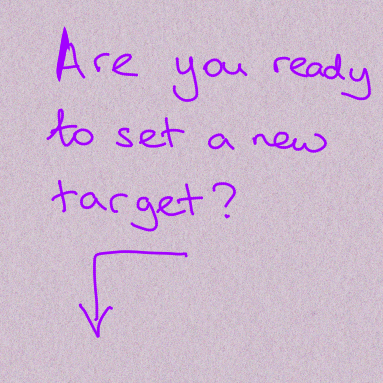 Are you ready
to set a new
target?